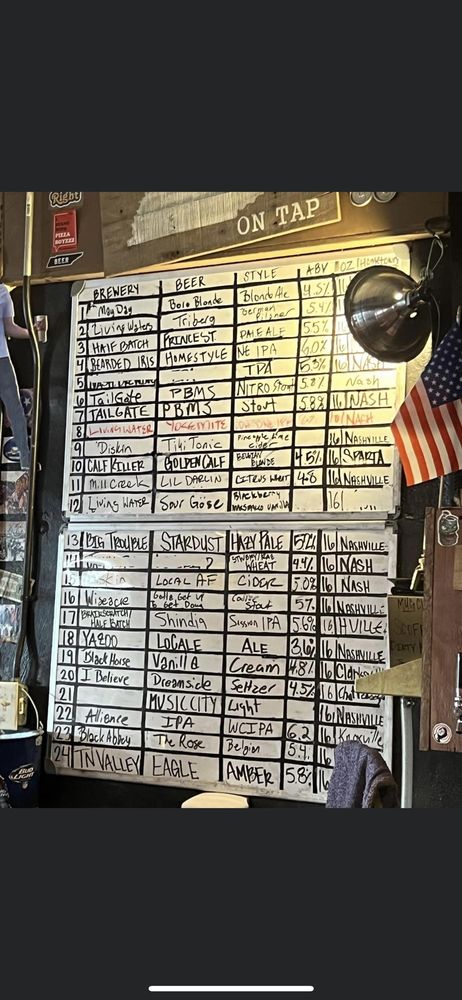 Right
PIZZA
BEER
ON TAP
BREWERY BEER STYLE ABV OZ HOMETOWN
1 May Day Boro Blonde Blonde Ale 4.5%
2 Living Waters Triberg German Pilsner 5.4%
3 HALF BATCH PRINCESS PALE ALE 5.5%
4 BEARDED IRIS HOMESTYLE NE IPA 6.0% 16 NASH
5 IPA 5.3% Nash
6 TailGate PBMS NITRO Stout 5.8% 16 NASH
7 TAILGATE PBMS Stout 5.8% 16 NASH
8 LIVING WATER YOSEMITE 16 NASH
9 Diskin Tiki Tonic Pineapple Lime Cider 16 NASHVILLE
10 CALF KILLER GOLDEN CALF BELGIAN BLONDE 4.5% 16 SPARTA
11 Mill Creek LIL DARLIN CITRUS WHEAT 4.8 16 NASHVILLE
12 LIVING WATER Sour Göse Blackberry MARSHMALLOW VANILLA 16
13 BIG TROUBLE STARDUST HAZY PALE 5.2% 16 NASHVILLE
14 WHEAT 4.4% 16 NASH
15 LOCAL AF CIDER 5.0% 16 NASH
16 Wiseacre Gotta Get Up To Get Down Coffee Stout 5% 16 NASHVILLE
17 HALF BATCH Shindig Session IPA 5.6% 16 HVILLE
18 YAZOO LOCALE ALE 3.6% 16 NASHVILLE
19 Black Horse Vanilla Cream 4.8% 16
20 I Believe Dreamside Seltzer 4.5% 16
21 MUSIC CITY Light 16 NASHVILLE
22 Alliance IPA WCIPA 6.2 16 Knoxville
23 Black Abbey The Rose Belgian 5.4% 16
24 TN VALLEY EAGLE AMBER 5.8% 16
BUD LIGHT